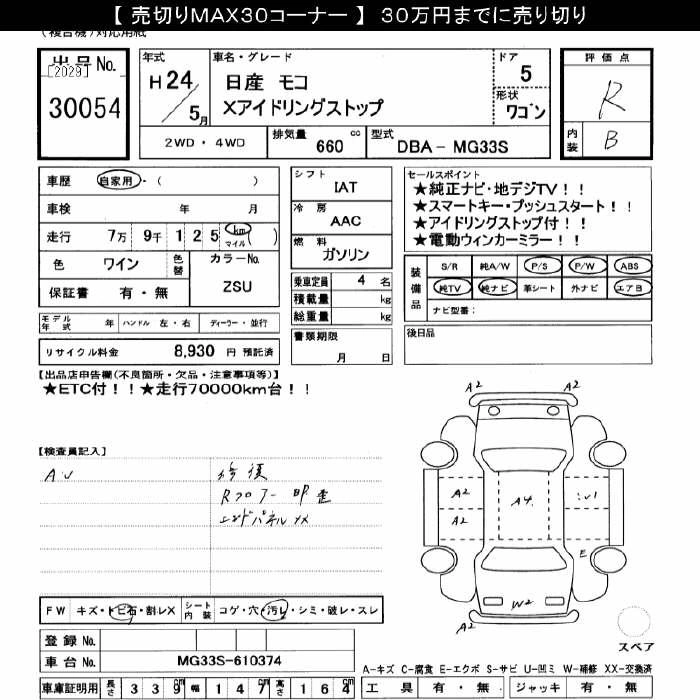 【 売切りMAX30コーナー 】 30万円までに売り切り
(複合機)対応用紙
出品No.
[2029]
30054
年式
H 24
5月
車名・グレード
日産 モコ
Xアイドリングストップ
ドア
5
形状
ワゴン
評価点
R
内装
B
2WD・4WD
排気量 660 cc
型式 DBA- MG33S
車歴 自家用・( )
車検 年 月
走行 7万 9千 1 2 5 km マイル ( )
色 ワイン 色替
カラーNo.
ZSU
保証書 有・無
シフト
IAT
冷房
AAC
燃料
ガソリン
乗車定員 4 名
積載量 kg
総重量 kg
書類期限
月 日
セールスポイント
★純正ナビ・地デジTV!!
★スマートキー・プッシュスタート!!
★アイドリングストップ付!!
★電動ウィンカーミラー!!
装備品
S/R 純A/W P/S P/W ABS
純TV 純ナビ 革シート 外ナビ エアB
ナビ型番:
後日品
モデル年式 年 ハンドル 左・右 ディーラー・並行
リサイクル料金 8,930 円 預託済
【出品店申告欄(不良箇所・欠品・注意事項等)】
★ETC付!!★走行70000km台!!
【検査員記入】
AU
修復
Rフロアー 凹歪
エンドパネル XX
A2 A2
A2 A4
A2
E
W2
A2
スペア
FW キズ・トビ石・割レX
シート内装 コゲ・穴・汚レ・シミ・破レ・スレ
登録 No.
車台 No. MG33S-610374
車庫証明用 長さ 3 3 9 cm 幅 1 4 7 cm 高さ 1 6 4 cm
A-キズ C-腐食 E-エクボ S-サビ U-凹ミ W-補修 XX-交換済
工具 有・無 ジャッキ 有・無